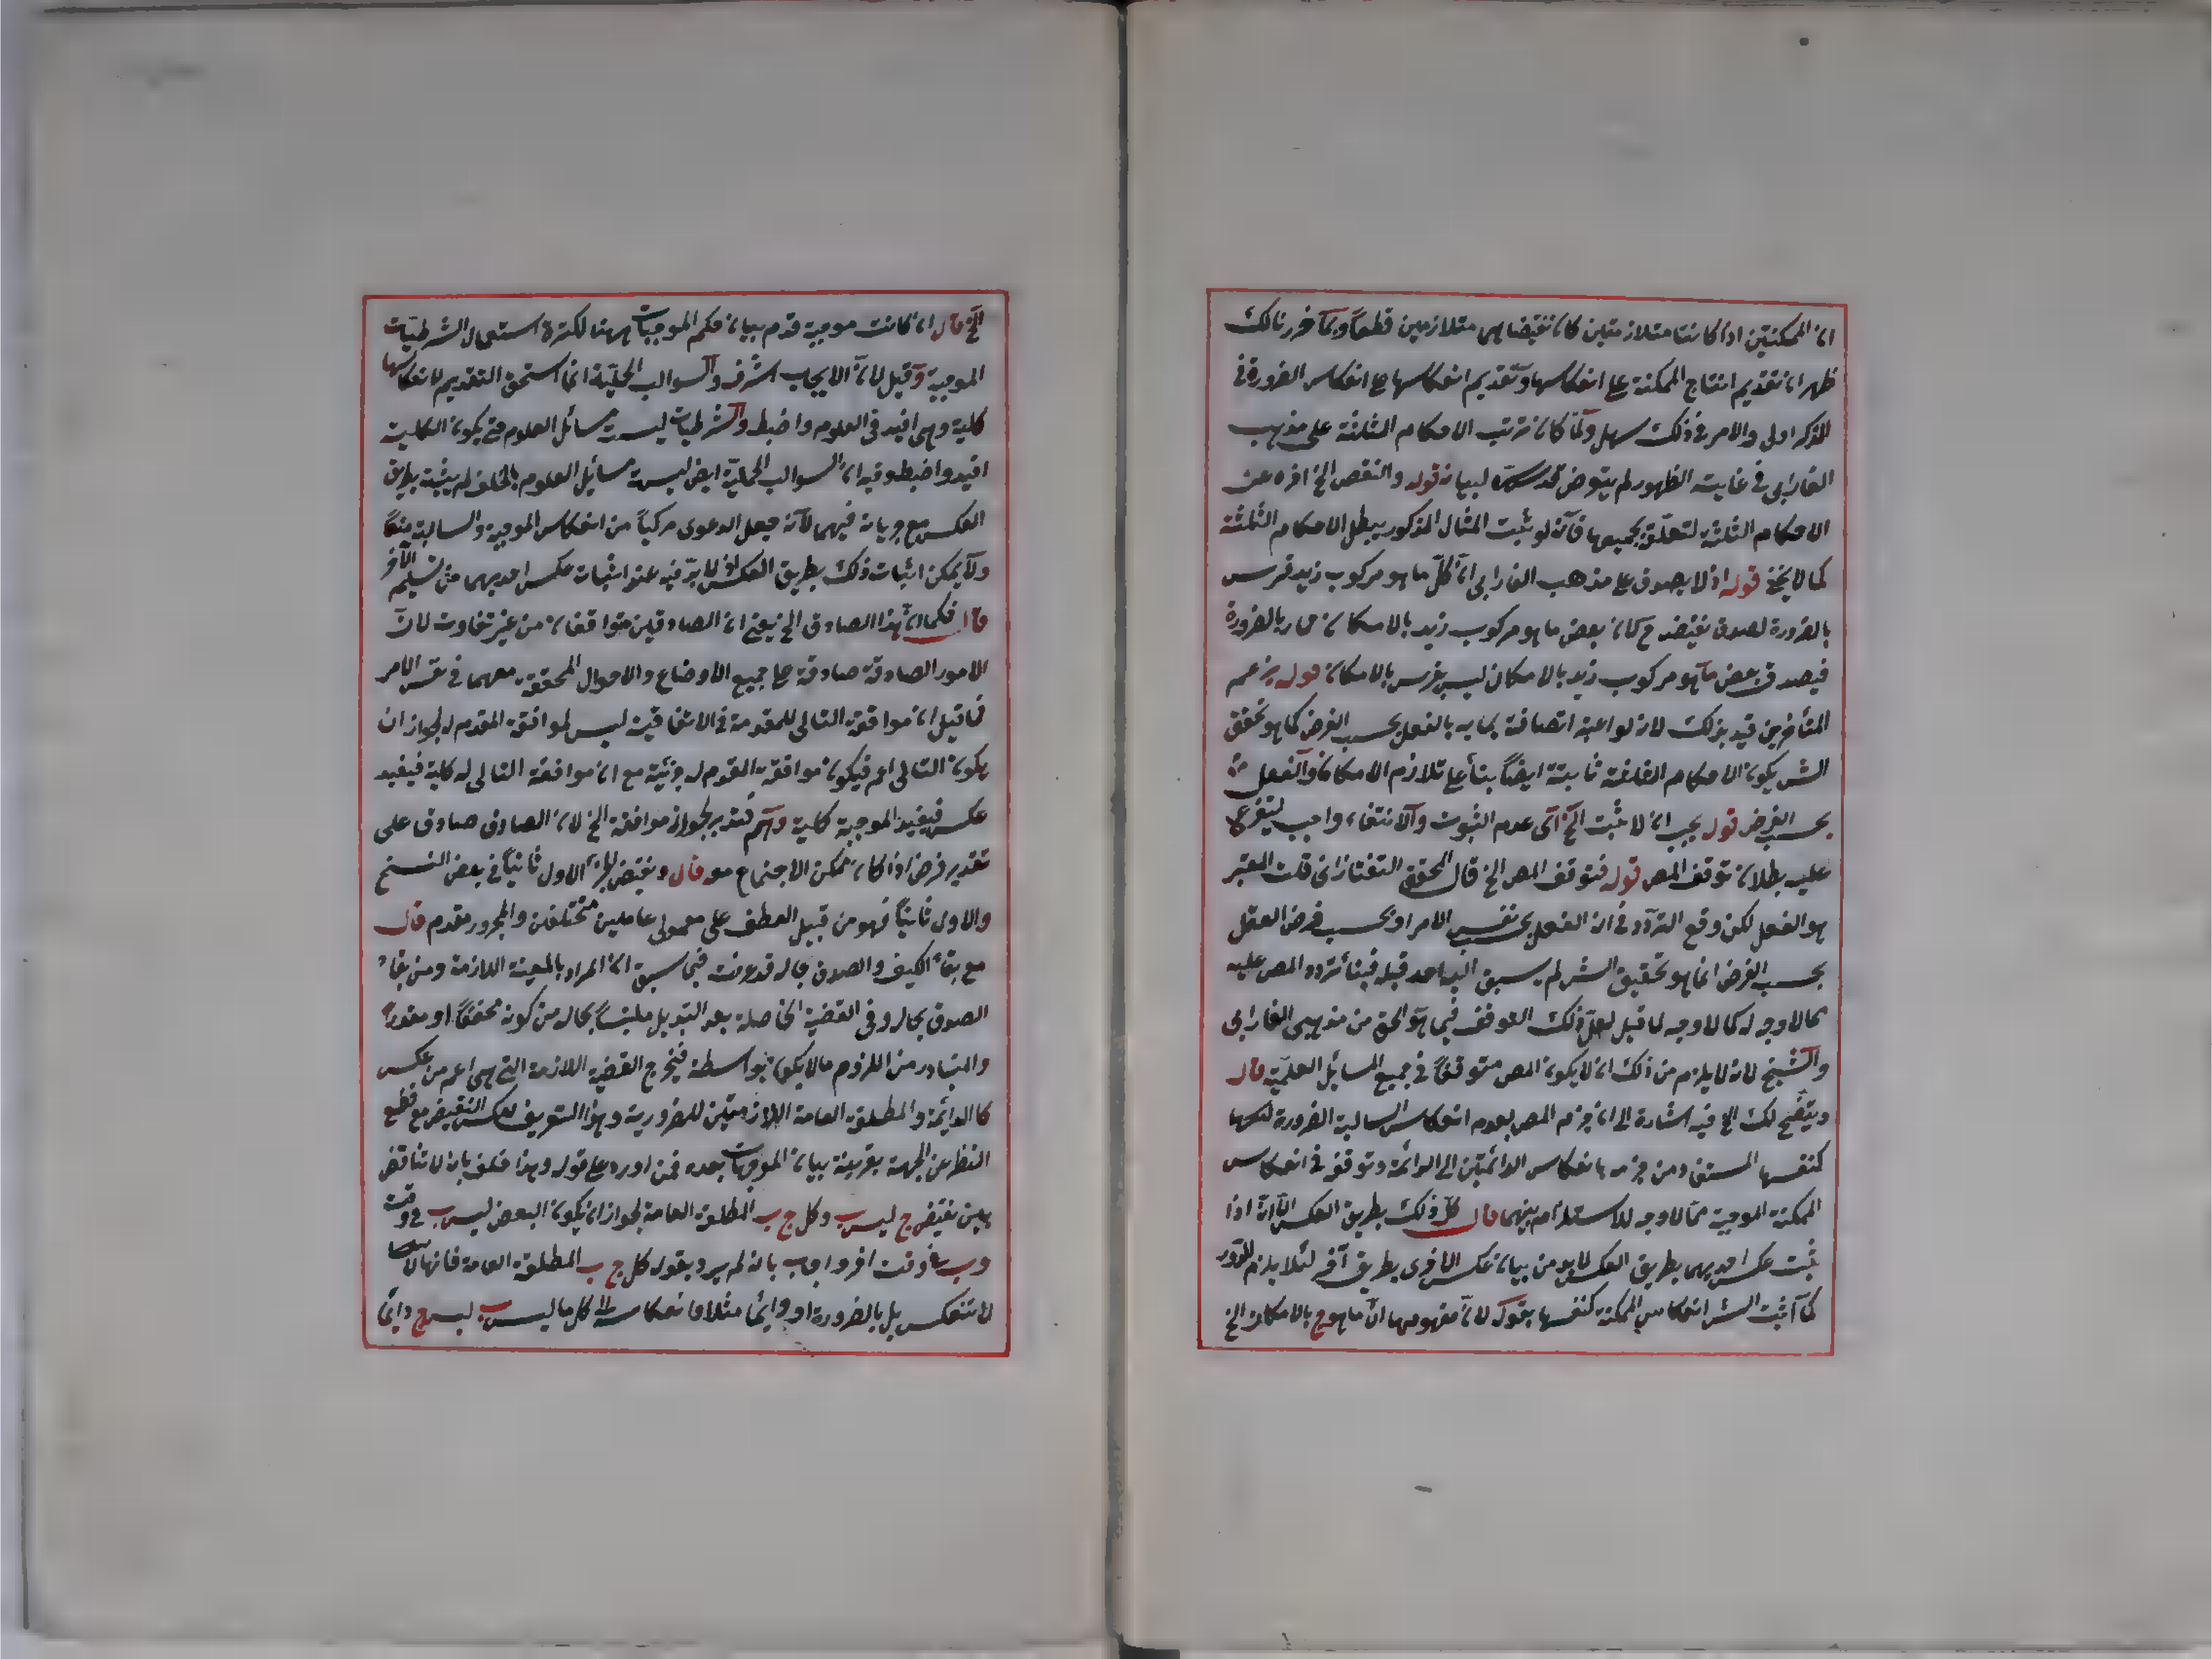 ان الممكنتين اذا كانتا متلازمتين كان نقيضاهما متلازمين قطعاً وبما حررنا لك
ظهر ان تقديم انتاج الممكنة على انعكاسها وتقديم انعكاسها على انعكاس الضرورة في
الذكر اولى والامر في ذلك سهل ولما كان ترتب الاحكام الثلثة على مذهب
الفارابى في غاية الظهور لم يتعرض قدس سره لبيانه قوله والنقض الخ اخره عن
الاحكام الثلثة لتعلقه بجميعها فانه لو ثبت المثال المذكور يبطل الاحكام الثلثة
كما لا يخفى قوله اذ لا يصدق على مذهب الفارابى ان كل ما هو مركوب زيد فرس
بالضرورة لصدق نقيضه كان بعض ما هو مركوب زيد بالامكان حمار بالضرورة
فيصدق بعض ما هو مركوب زيد بالامكان ليس بفرس بالامكان قوله بزعم
المتأخرين قيد بذلك لانه لو اعتبر اتصافه بما به بالفعل بحسب الفرض كما هو تحقيق
الش يكون الاحكام الثلثة ثابتة ايضاً بناء على تلازم الامكان والفعل
بحسب الفرض قوله يجب ان لا يثبت الخ اى عدم الثبوت والانتفاء واجب ليتفرع
عليه بطلان توقف المص قوله فتوقف المص الخ قال المحقق التفتازانى قلت المعتبر
هو الفعل لكن وقع التردد في ان الفعل بحسب نفس الامر او بحسب فرض العقل
بحسب الفرض انما هو تحقيق الش لم يسبق اليه احد قبله فبناء تردد المص عليه
مما لا وجه له كما لا وجه لما قيل لعل ذلك التوقف فيما هو الحق من مذهبى الفارابى
والشيخ لانه لا يلزم من ذلك ان لا يكون المص متوقفاً في جميع المسائل العلمية قال
ويتضح لك الخ فيه اشارة الى ان جزم المص بعدم انعكاس السالبة الضرورة
كنفسها المستفاد من جزمه بانعكاس الدائمتين الى الدائمة وتوقفه في انعكاس
الممكنة الموجبة مما لا وجه له للاستلزام بينهما قال كل ذلك بطريق العكس الا انه اذا
ثبت عكس احديهما بطريق العكس لا بد من بيان عكس الاخرى بطريق آخر لئلا يلزم الدور
كما اثبت الش انعكاس الممكنة كنفسها بقوله لان مفهومها ان ما هو ج بالامكان الخ
الخ قال ان كانت موجبة قدم بيان حكم الموجبات ههنا لكثرة استعمال الشرطيات
الموجبة وقيل لان الايجاب اشرف والسوالب الحملية انما استحق التقديم لانعكاسها
كلية وهى افيد في العلوم واضبط والشرطيات ليست مسائل العلوم حتى يكون الكلية
افيد واضبط وفيه ان السوالب الحملية ايض ليست مسائل العلوم بالخلف لم يثبته بطريق
العكس مع جريانه فيهما لانه جعل الدعوى مركباً من انعكاس الموجبة والسالبة معاً
ولا يمكن اثبات ذلك بطريق العكس اذ لا بد فيه عند اثبات عكس احديهما من تسليم الآخر
قال فكما ان هذا الصادق الخ يعنى ان الصادقين متوافقان من غير تفاوت لان
الامور الصادقة صادقة على جميع الاوضاع والاحوال المحققة معهما في نفس الامر
فما قيل ان موافقة التالى للمقدمة في الاتفاقية ليس لموافقة المقدم له لجواز ان
يكون التالى اعم فيكون موافقة المقدم له جزئية مع ان موافقة التالى له كلية فيفيد
عكس فيفيد الموجبة كلية وهم فتدبر لجواز موافقة الخ لان الصادق صادق على
تقدير فرض اذا كان ممكن الاجتماع معه قال ونقيض الجزء الاول ثانياً في بعض النسخ
والاول ثانياً فهو من قبيل العطف على معمولى عاملين مختلفين والمجرور مقدم قال
مع بقاء الكيف والصدق بحاله قد عرفت فيما سبق ان المراد بالمعية اللازمة ومن بقاء
الصدق بحاله وفى القضية الحاصلة بعد التبديل ملتبساً بحاله من كونه محققاً او مقدراً
والمتبادر من اللزوم مالا يكون بواسطة فيخرج القضية اللازمة التى هى اعم من عكس
كالدائمة والمطلقة العامة اللازمتين للضرورية وهذا التعريف لعكس النقيض مع قطع
النظر عن الجهة بقرينة بيان الموجهات بعده فمن اورد على قوله وهذا خلف بانه لا تناقض
بين نقيض ج ليس ب وكل ج ب المطلقة العامة لجواز ان يكون البعض ليس ب في وقت
وب في وقت اخر واجاب بانه لم يرد بقوله كل ج ب المطلقة العامة فانها
لا تنعكس بل بالضرورة او دائماً مثلا فانعكاسه الى كل ما ليس ب ليس ج دائماً